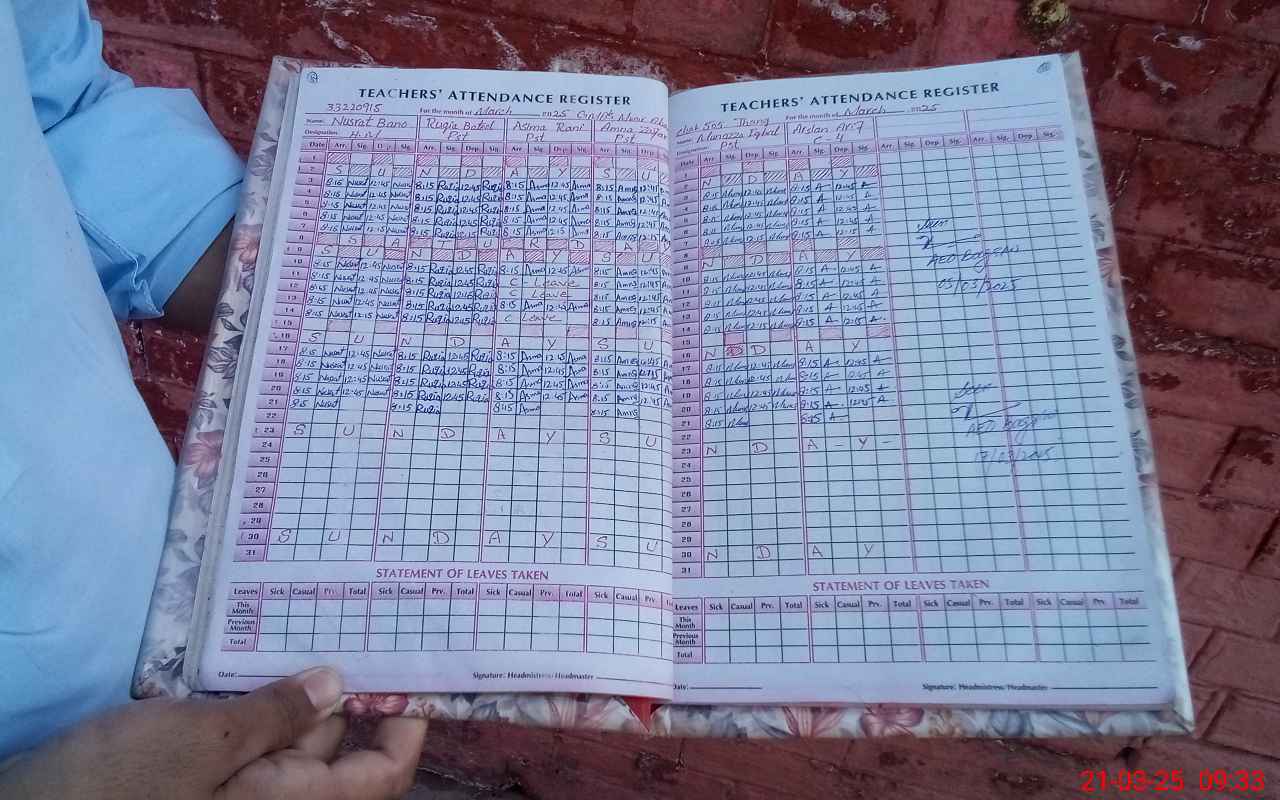 TEACHERS' ATTENDANCE REGISTER
33220915 For the month of March 2025
Name: Nusrat Bano Ruqia Batool Asma Rani Amna
Designation: H.M Pst Pst Pst
Date Arr. Sig. Dep. Sig. Arr. Sig. Dep. Sig. Arr. Sig. Dep. Sig. Arr. Sig. Dep.
1
2 S U N D A Y S U
3 8:15 Nusrat 12:45 Nusrat 8:15 Ruqia 12:45 Ruqia 8:15 Asma 12:45 Asma 8:15 Amna 12:45
4 8:15 Nusrat 12:45 Nusrat 8:15 Ruqia 12:45 Ruqia 8:15 Asma 12:45 Asma 8:15 Amna 12:45
5 8:15 Nusrat 12:45 Nusrat 8:15 Ruqia 12:45 Ruqia 8:15 Asma 12:45 Asma 8:15 Amna 12:45
6 8:15 Nusrat 12:45 Nusrat 8:15 Ruqia 12:45 Ruqia 8:15 Asma 12:45 Asma 8:15 Amna 12:45
7 8:15 Nusrat 12:15 Nusrat 8:15 Ruqia 12:15 Ruqia 8:15 Asma 12:15 Asma 8:15 Amna 12:15
8 S A T U R D A
9 S U N D A Y S U
10 8:15 Nusrat 12:45 Nusrat 8:15 Ruqia 12:45 Ruqia 8:15 Asma 12:45 Asma 8:15 Amna 12:45
11 8:15 Nusrat 12:45 Nusrat 8:15 Ruqia 12:45 Ruqia C - Leave 8:15 Amna 12:45
12 8:15 Nusrat 12:45 Nusrat 8:15 Ruqia 12:45 Ruqia C Leave 8:15 Amna 12:45
13 8:15 Nusrat 12:45 Nusrat 8:15 Ruqia 12:45 Ruqia 8:15 Asma 12:45 Asma 8:15 Amna 12:45
14 8:15 Nusrat 12:15 Nusrat 8:15 Ruqia 12:15 Ruqia C Leave 8:15 Amna 12:15
15
16 S U N D A Y S U
17 8:15 Nusrat 12:45 Nusrat 8:15 Ruqia 12:45 Ruqia 8:15 Asma 12:45 Asma 8:15 Amna 12:45
18 8:15 Nusrat 12:45 Nusrat 8:15 Ruqia 12:45 Ruqia 8:15 Asma 12:45 Asma 8:15 Amna 12:45
19 8:15 Nusrat 12:45 Nusrat 8:15 Ruqia 12:45 Ruqia 8:15 Asma 12:45 Asma 8:15 Amna 12:45
20 8:15 Nusrat 12:45 Nusrat 8:15 Ruqia 12:45 Ruqia 8:15 Asma 12:45 Asma 8:15 Amna 12:45
21 8:15 Nusrat 8:15 Ruqia 8:45 Asma 8:15 Amna
22
23 S U N D A Y S U
24
25
26
27
28
29
30 S U N D A Y S U
31
STATEMENT OF LEAVES TAKEN
Leaves Sick Casual Prv. Total Sick Casual Prv. Total Sick Casual Prv. Total Sick Casual Prv.
This Month
Previous Month
Total
Date: Signature: Headmistress/Headmaster
TEACHERS' ATTENDANCE REGISTER
Chak 505 Jhang For the month of March 2025
Name: Iqbal Arslan Arif
Designation: Pst C - 4
Date Arr. Sig. Dep. Sig. Arr. Sig. Dep. Sig. Arr. Sig. Dep. Sig. Arr. Sig. Dep. Sig.
1
2 N D A Y
3 8:15 12:45 8:15 A 12:45 A
4 8:15 12:45 8:15 A 12:45 A
5 8:15 12:45 8:15 A 12:45 A
6 8:15 12:45 8:15 A 12:45 A
7 8:15 12:15 8:15 A 12:15 A
8
9 N D A Y
10 8:15 12:45 8:15 A 12:45 A
11 8:15 12:45 8:15 A 12:45 A
12 8:15 12:45 8:15 A 12:45 A
13 8:15 12:45 8:15 A 12:45 A
14 8:15 12:15 8:15 A 12:15 A
15
16 N D D A Y
17 8:15 12:45 8:15 A 12:45 A
18 8:15 12:45 8:15 A 12:45 A
19 8:15 12:45 8:15 A 12:45 A
20 8:15 12:45 8:15 A 12:45 A
21 8:15 8:45 A
22
23 N D A - Y -
24
25
26
27
28
29
30 N D A Y
31
Seen
AEO
05/03/2025
Seen
AEO
17/03/2025
STATEMENT OF LEAVES TAKEN
Leaves Sick Casual Prv. Total Sick Casual Prv. Total Sick Casual Prv. Total Sick Casual Prv. Total
This Month
Previous Month
Total
Date: Signature: Headmistress/Headmaster
21-03-25 09:33